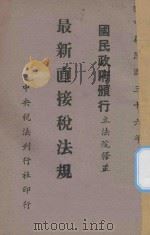 中華民國三十六年
國民政府頒行
立法院修正
最新直接稅法規
中央稅法刊行社印行